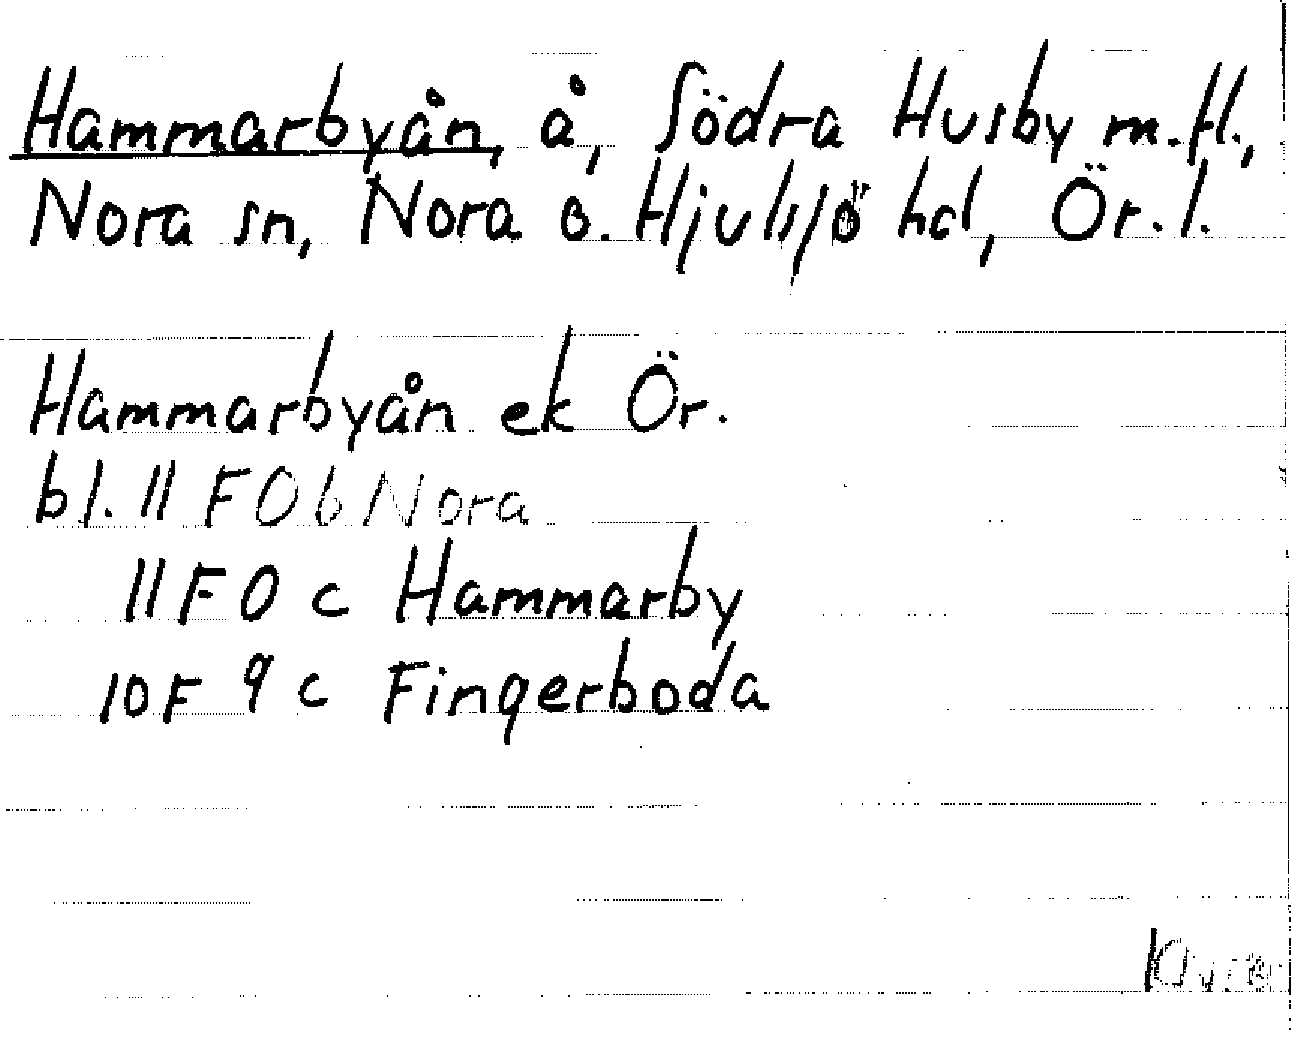 Hammarbyån, å, Södra Husby m.fl.,
Nora sn, Nora o. Hjulsjö hd, Ör. l.
Hammarbyån ek Ör.
bl. 11 F 0 b Nora
11 F 0 c Hammarby
10 F 9 c Fingerboda